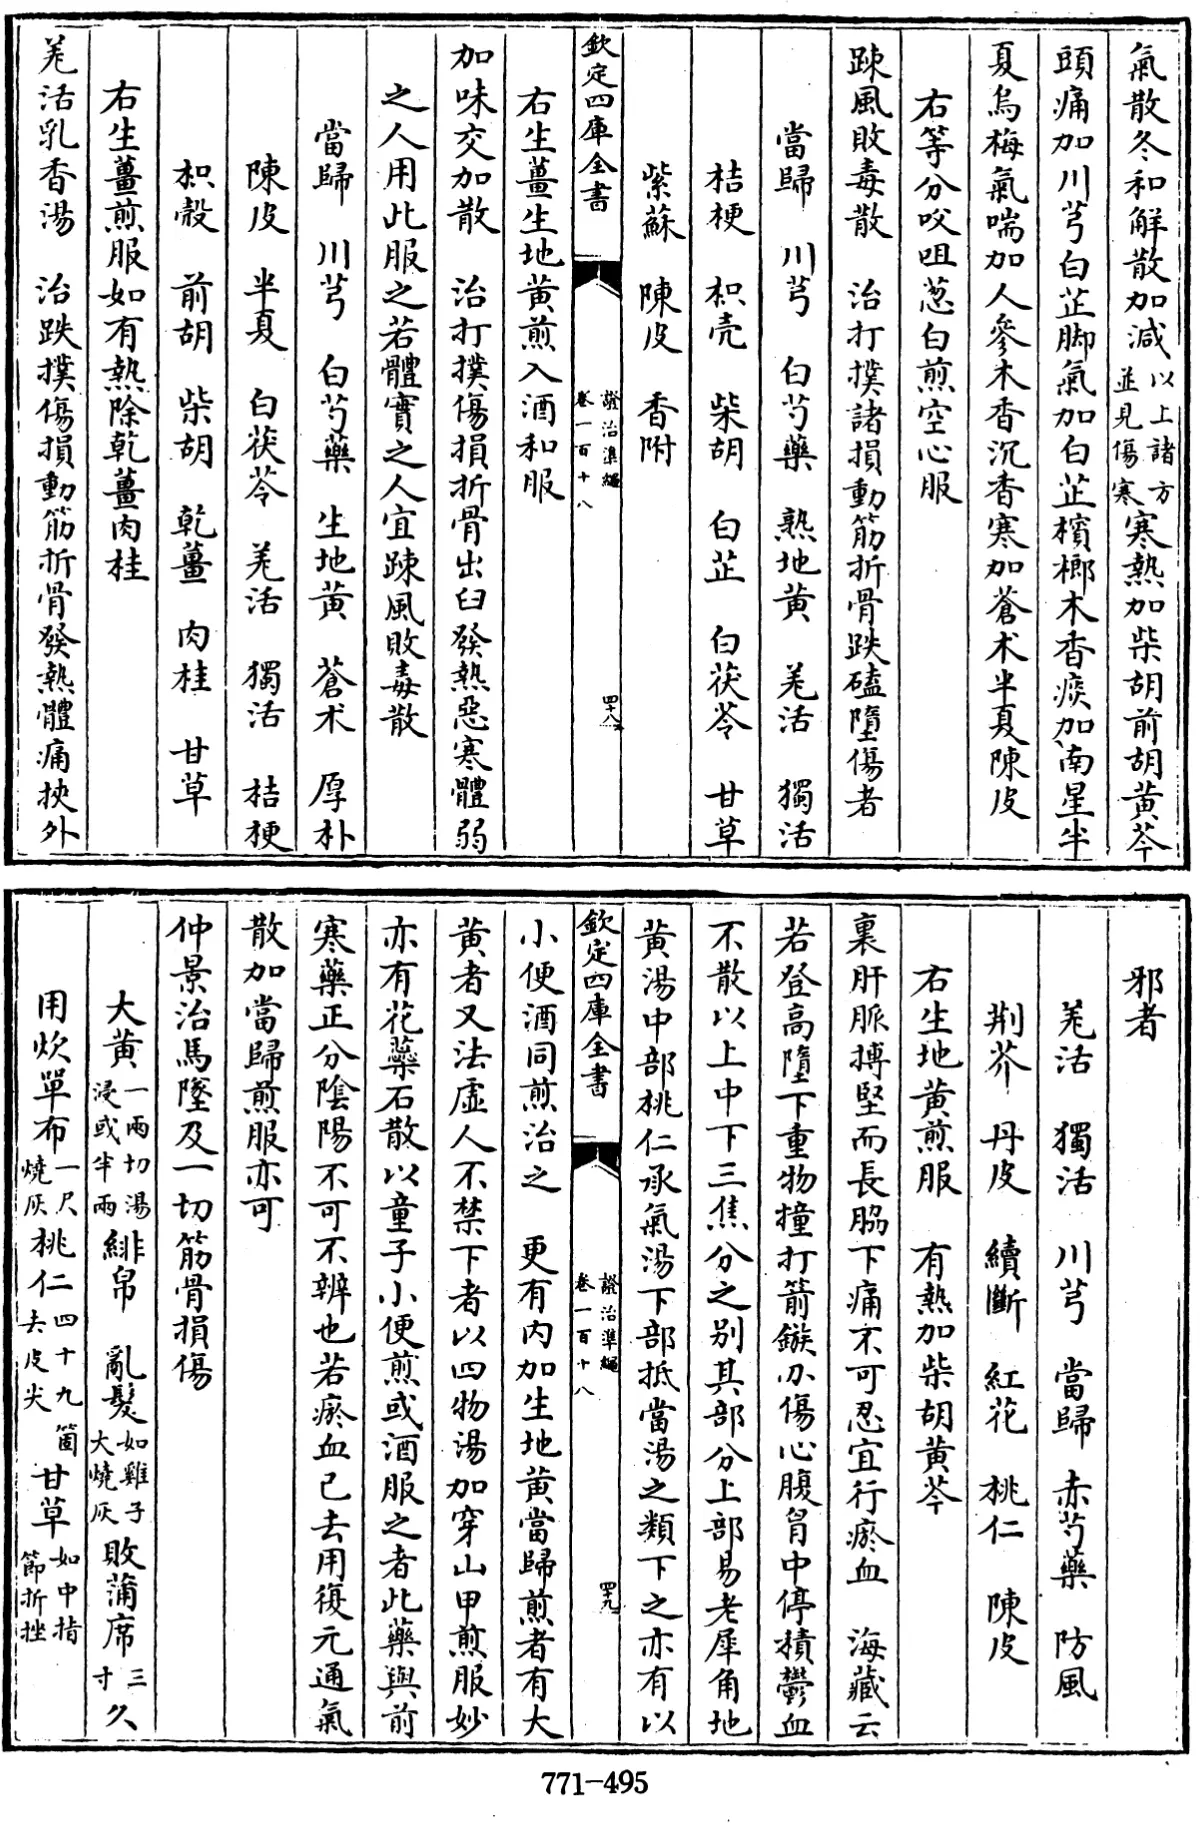 氣散冬和解散加減以上諸方並見傷寒寒熱加柴胡前胡黃芩
頭痛加川芎白芷脚氣加白芷檳榔木香痰加南星半
夏烏梅氣喘加人參木香沉香寒加蒼朮半夏陳皮
右等分㕮咀葱白煎空心服
踈風敗毒散　治打撲諸損動筋折骨跌磕墮傷者
當歸　川芎　白芍藥　熟地黃　羌活　獨活
桔梗　枳壳　柴胡　白芷　白茯苓　甘草
紫蘇　陳皮　香附
欽定四庫全書　證治準繩卷一百十八　四十八
右生薑生地黃煎入酒和服
加味交加散　治打撲傷損折骨出臼發熱惡寒體弱
之人用此服之若體實之人宜踈風敗毒散
當歸　川芎　白芍藥　生地黃　蒼朮　厚朴
陳皮　半夏　白茯苓　羌活　獨活　桔梗
枳殼　前胡　柴胡　乾薑　肉桂　甘草
右生薑煎服如有熱除乾薑肉桂
羌活乳香湯　治跌撲傷損動筋折骨發熱體痛挾外
邪者
羌活　獨活　川芎　當歸　赤芍藥　防風
荆芥　丹皮　續斷　紅花　桃仁　陳皮
右生地黃煎服　有熱加柴胡黃芩
裏肝脈搏堅而長脇下痛不可忍宜行瘀血　海藏云
若登高墮下重物撞打箭鏃刅傷心腹胷中停積鬱血
不散以上中下三焦分之别其部分上部易老犀角地
黃湯中部桃仁承氣湯下部抵當湯之類下之亦有以
欽定四庫全書　證治準繩卷一百十八　四十九
小便酒同煎治之　更有内加生地黃當歸煎者有大
黃者又法虛人不禁下者以四物湯加穿山甲煎服妙
亦有花蘂石散以童子小便煎或酒服之者此藥與前
寒藥正分陰陽不可不辨也若瘀血已去用復元通氣
散加當歸煎服亦可
仲景治馬墜及一切筋骨損傷
大黃一兩切湯浸或半兩緋帛　亂髮如雞子大燒灰敗蒲席三寸久
用炊單布一尺燒灰桃仁四十九箇去皮尖甘草如中指節折挫
771-495